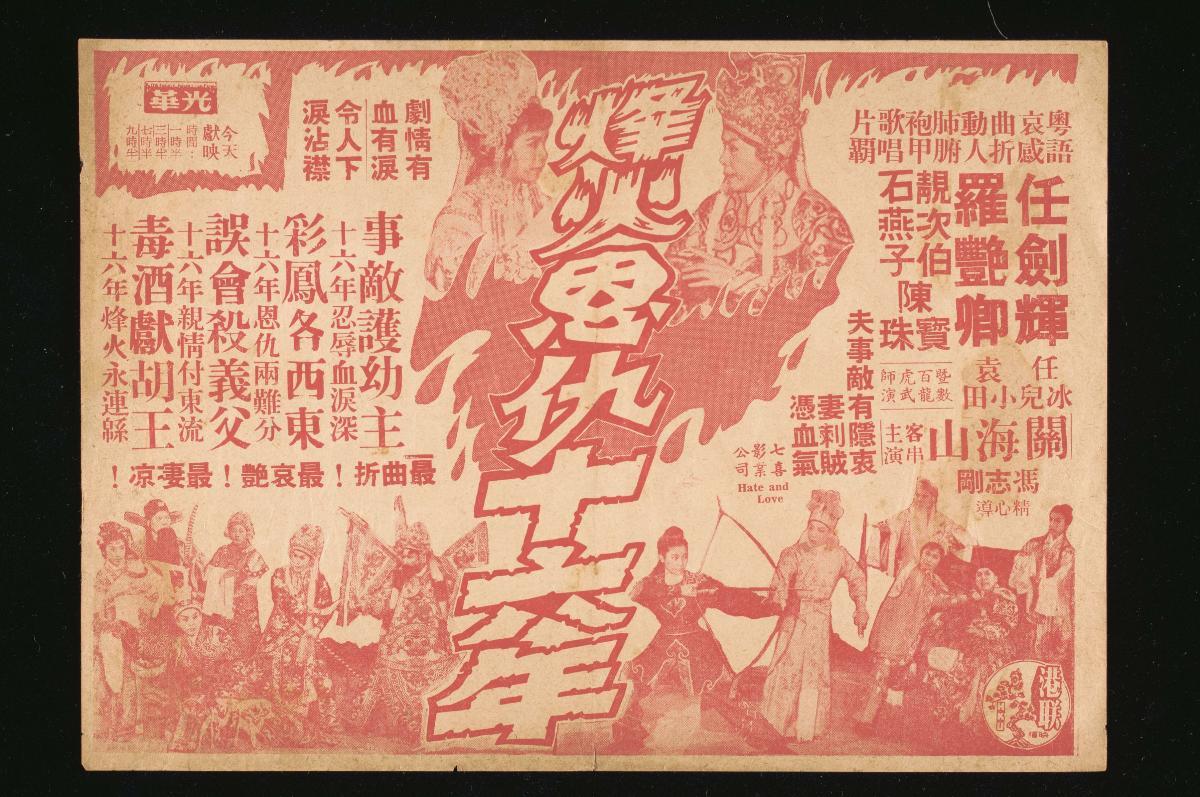 粵語
哀感
曲折
動人
肺腑
袍甲
歌唱
片霸
任劍輝
羅艷卿
靚次伯
石燕子
陳寶珠
任冰兒
袁小田
暨數百龍虎武師演
關海山
客串主演
馮志剛
精心導
夫事敵有隱衷
妻刺賊憑血氣
七喜影業公司
Hate and
Love
烽火恩仇十六年
劇情有
血有淚
令人下
淚沾襟
光華
今天
獻映
時間：
一時半
三時半
七時半
九時半
事敵護幼主
十六年忍辱血淚深
彩鳳各西東
十六年恩仇兩難分
誤會殺義父
十六年親情付東流
毒酒獻胡王
十六年烽火永連緜
最曲折！最哀艷！最凄凉！
港聯